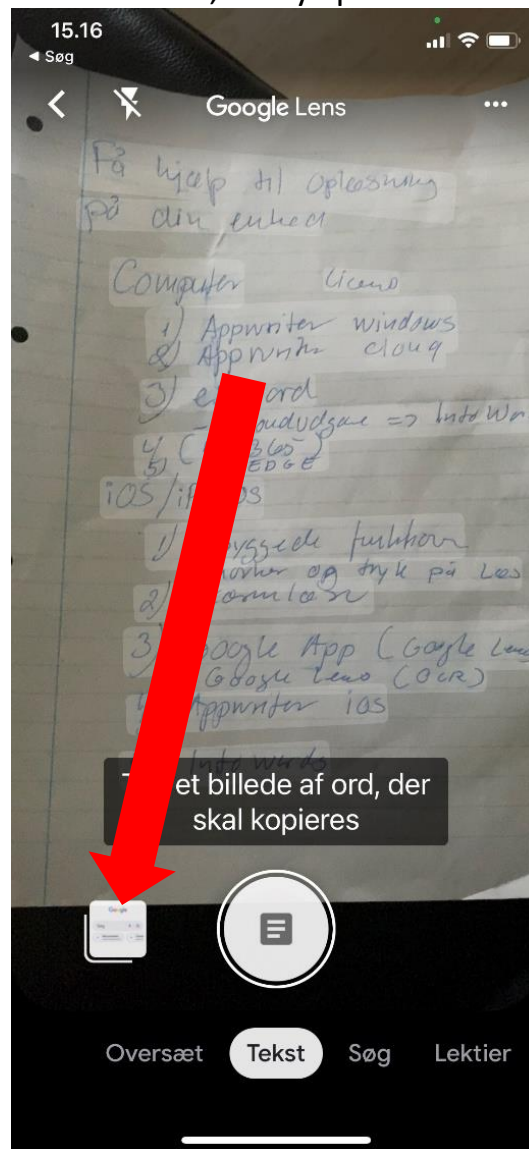 15.16
Søg
Google Lens
Få hjælp til Oplæsning
på din enhed
Computer Licens
1) Appwriter windows
2) Appwriter cloud
3) ord
udgave => IntoWor
4) ( 365)
5) EDGE
iOS/iP OS
1) byggede funktioner
og tryk på Læs
2)
3) Google App (Google Len
Google Lens (OCR)
Appwriter iOS
Intowords
et billede af ord, der
skal kopieres
Google
Oversæt Tekst Søg Lektier